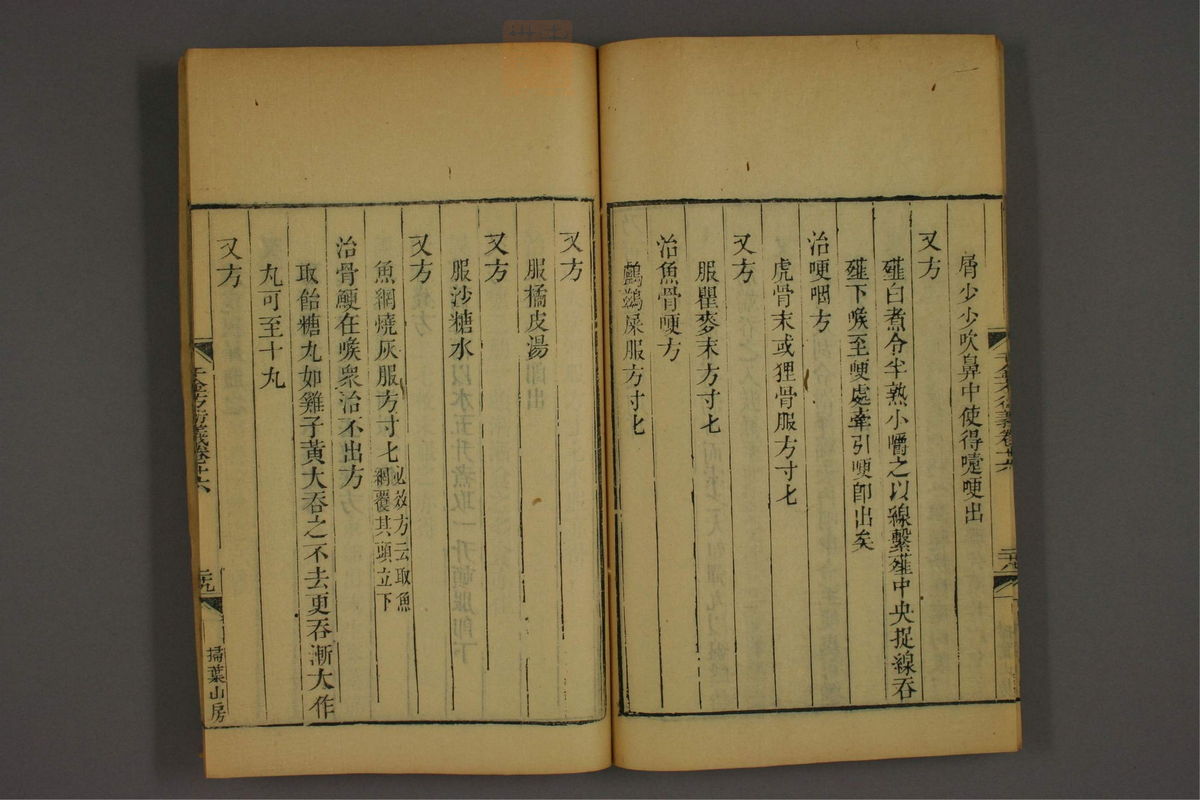 屑少少吹鼻中使得嚏哽出
又方
薤白煮令半熟小嚼之以線繫薤中央捉線吞
薤下喉至哽處牽引哽卽出矣
治哽咽方
虎骨末或狸骨服方寸匕
又方
服瞿麥末方寸匕
治魚骨哽方
鸕鷀屎服方寸匕
又方
服橘皮湯
又方
服沙糖水
又方
魚網燒灰服方寸匕必效方云取魚
網覆其頭立下
治骨鯁在喉衆治不出方
取飴糖丸如雞子黃大吞之不去更吞漸大作
丸可至十丸
又方
千金方衍義卷二十六
掃葉山房